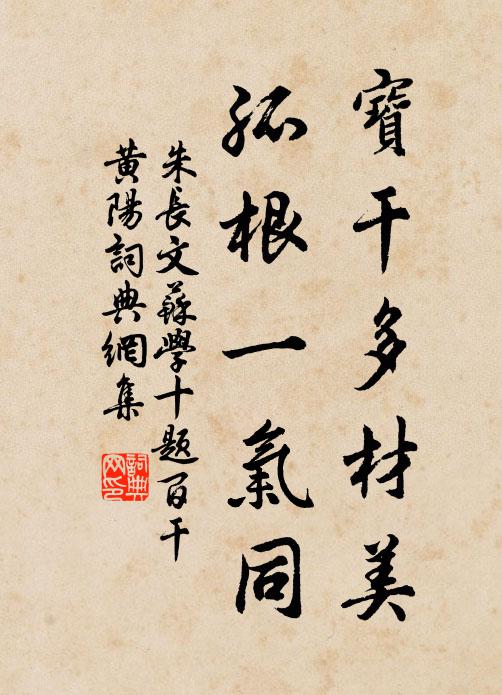 寶干多材美
孤根一氣同
朱長文蘇學十題百干
黄陽詞典網集
詞典網印